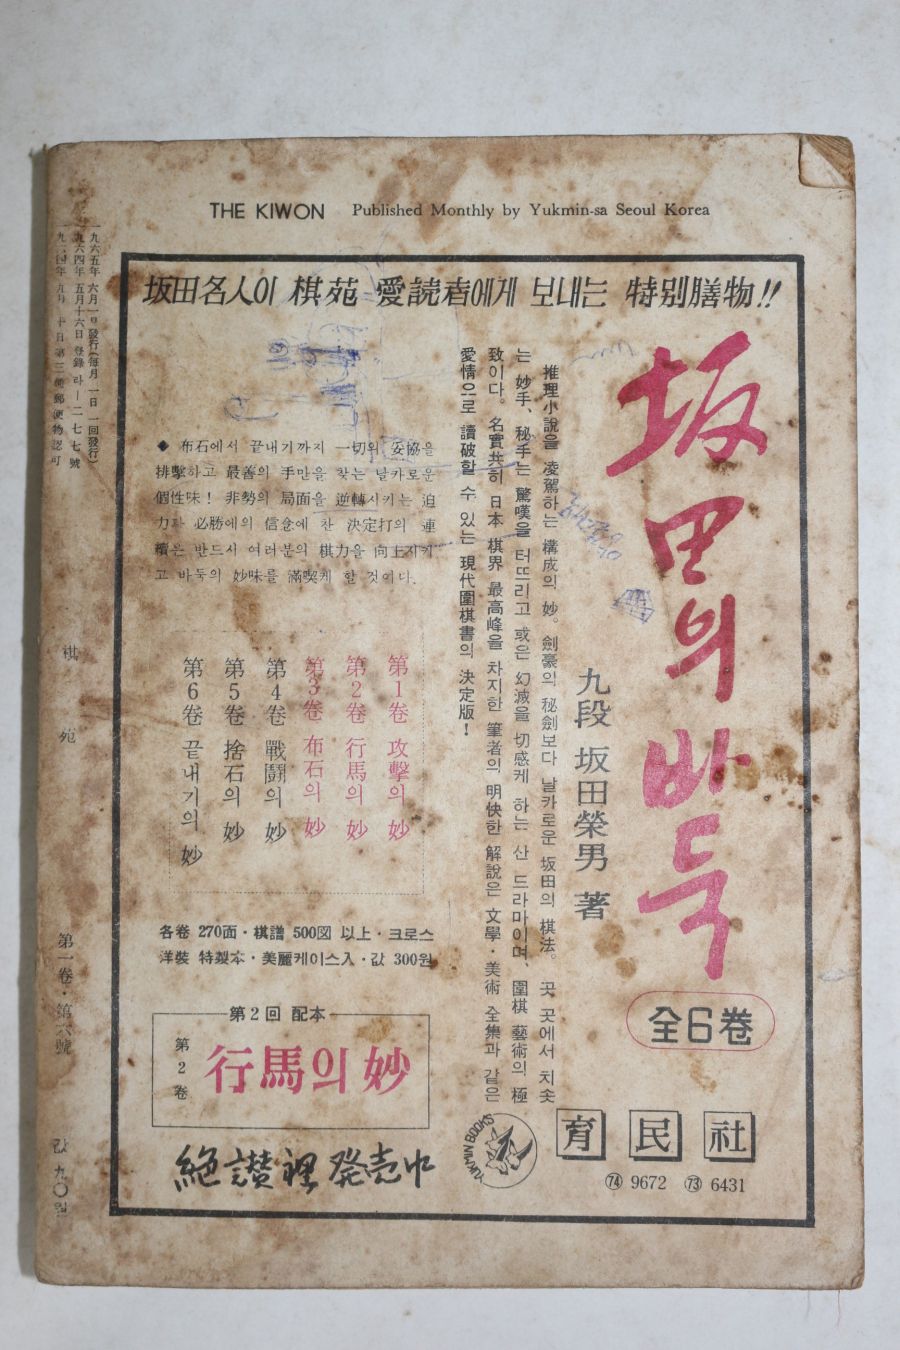 THE KIWON Published Monthly by Yukmin-sa Seoul Korea
坂田名人이 棋苑 愛読者에게 보내는 特別膳物!!
坂田의 바둑
全6卷
九段 坂田榮男 著
推理小說을 凌駕하는 構成의 妙。劍豪의 秘劍보다 날카로운 坂田의 棋法。곳 곳에서 치솟
는 妙手、秘手는 驚嘆을 터뜨리고 或은 幻滅을 切感케 하는 산 드라마이며、圍棋 藝術의 極
致이다。名實共히 日本 棋界 最高峰을 차지한 筆者의 明快한 解說은 文學・美術 全集과 같은
愛情으로 讀破할 수 있는 現代圍棋書의 決定版!
◆ 布石에서 끝내기까지 一切의 妥協을
排擊하고 最善의 手만을 찾는 날카로운
個性味! 非勢의 局面을 逆轉시키는 迫
力과 必勝에의 信念에 찬 決定打의 連
續은 반드시 여러분의 棋力을 向上시키
고 바둑의 妙味를 滿喫케 할 것이다.
第1卷 攻擊의 妙
第2卷 行馬의 妙
第3卷 布石의 妙
第4卷 戰鬪의 妙
第5卷 捨石의 妙
第6卷 끝내기의 妙
各卷 270面・棋譜 500図 以上・크로스
洋裝 特製本・美麗케이스入・값 300원
第2回 配本
第2卷
行馬의 妙
絶讃裡 発売中
YUKMIN BOOKS
育民社
㉔ 9672 ㉓ 6431
一九六五年 六月一日 發行(每月一日 一回發行)
一九六四年 五月十六日 登錄 라―二七七號
棋苑 第一卷・第六號 값 九〇원